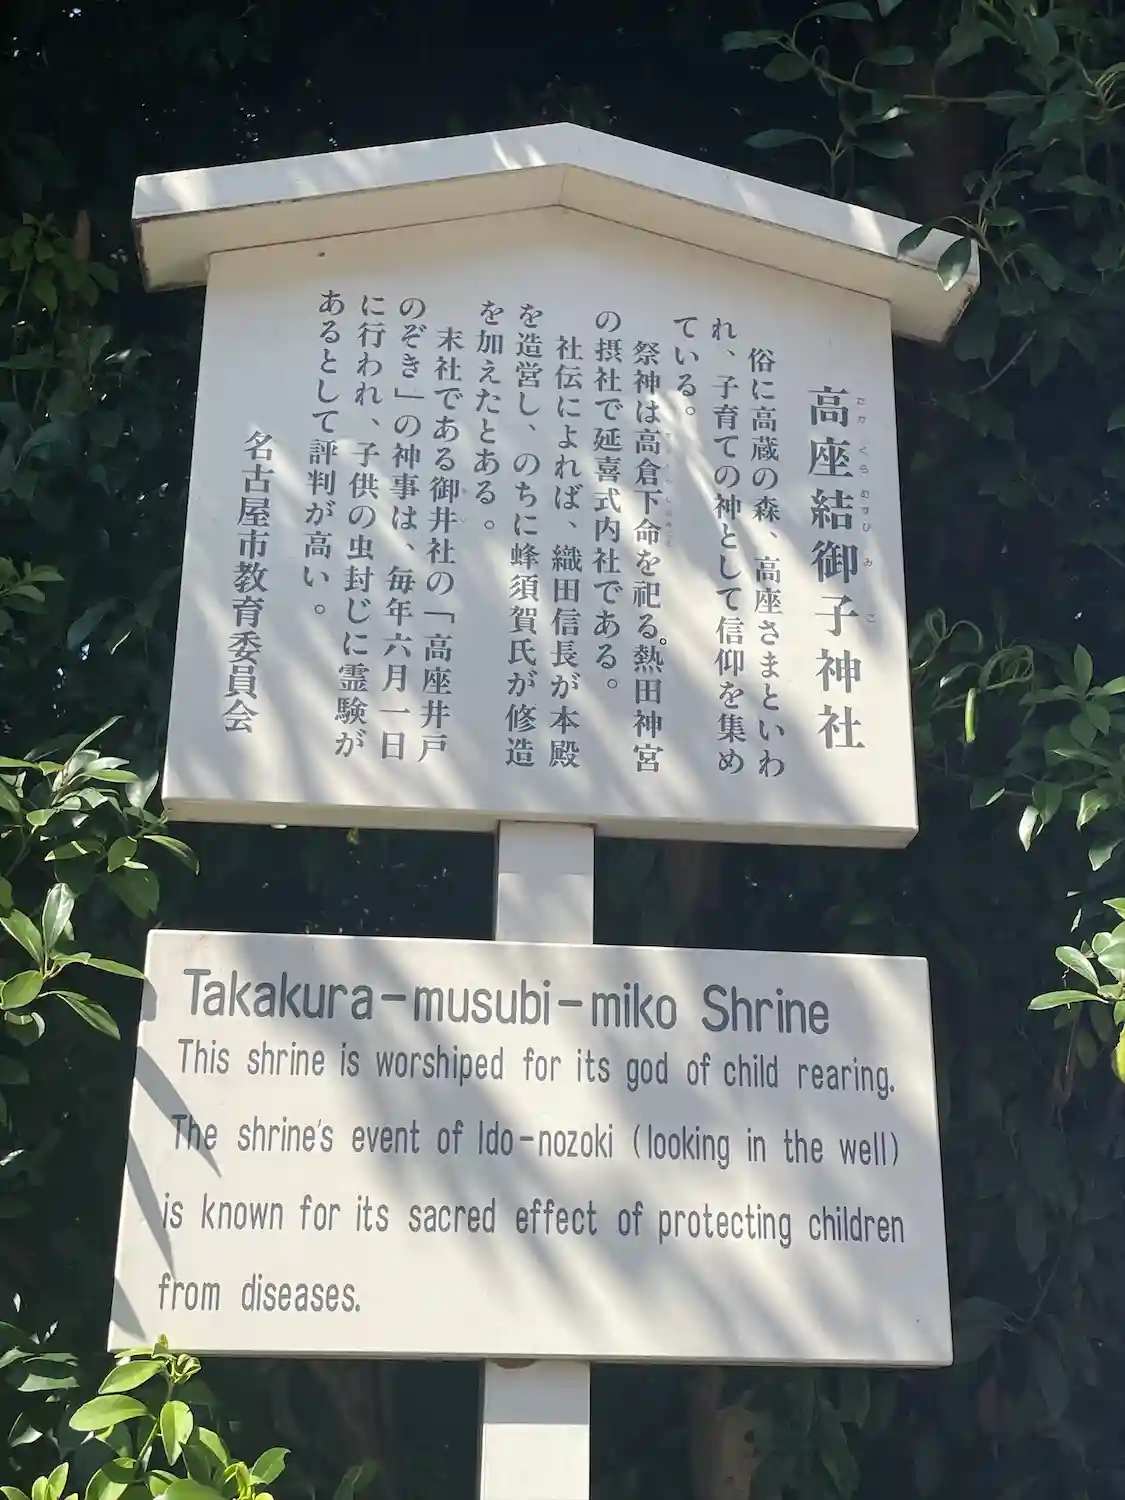 高座結御子神社
たかくらむすびみこ
俗に高蔵の森、高座さまといわ
れ、子育ての神として信仰を集め
ている。
祭神は高倉下命を祀る。熱田神宮
の摂社で延喜式内社である。
社伝によれば、織田信長が本殿
を造営し、のちに蜂須賀氏が修造
を加えたとある。
末社である御井社の「高座井戸
のぞき」の神事は、毎年六月一日
に行われ、子供の虫封じに霊験が
あるとして評判が高い。
名古屋市教育委員会
Takakura-musubi-miko Shrine
This shrine is worshiped for its god of child rearing.
The shrine's event of Ido-nozoki (looking in the well)
is known for its sacred effect of protecting children
from diseases.